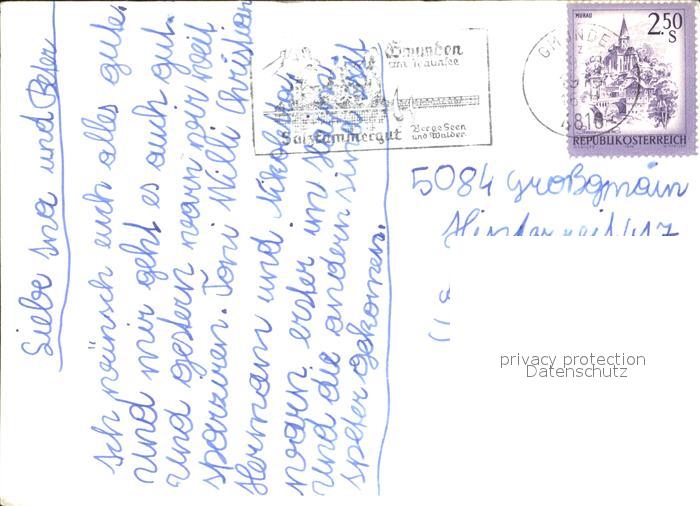 Liebe Ina und Peter
Ich wünsch euch alles gute.
Und mir geht es auch gut.
und gestern warn wir weit
sparziren. Toni Willi Christian
Hermann und Nikolaus
warn erster im Heim
und die andern sind mit
später gekomen.
Gmunden
am Traunsee
Salzkammergut
Berge Seen
und Wälder
GMUNDEN
4810
MURAU
2.50
S
REPUBLIK ÖSTERREICH
5084 Großgmain
privacy protection
Datenschutz